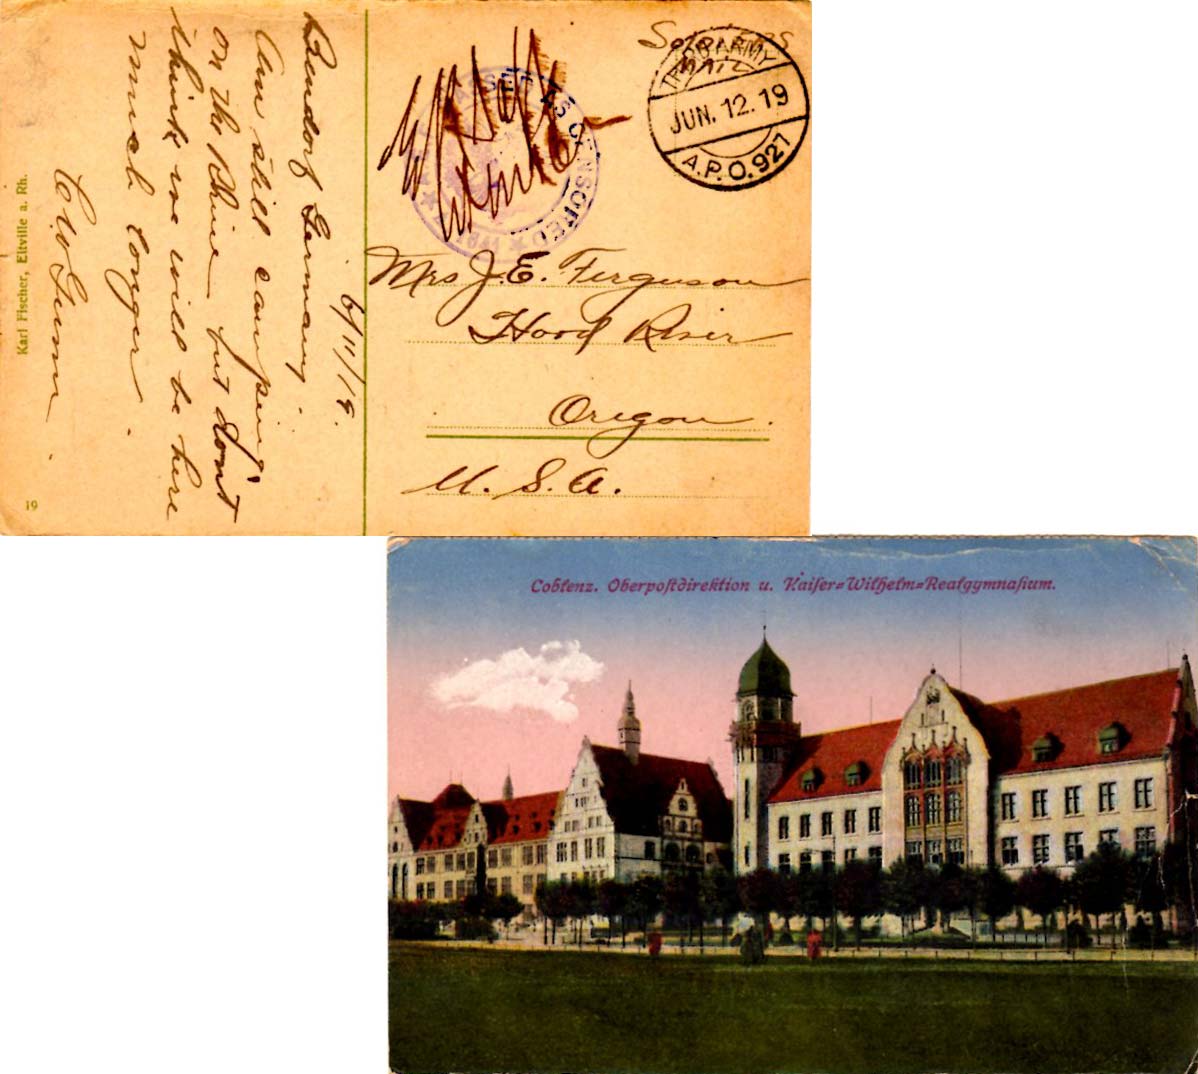 Bendorf Germany.
6/11/19.
Am still camping
on the Rhine but don't
think we will be here
much longer.
Karl Fischer, Eltville a. Rh.
19
THIRD ARMY
JUN. 12. 19
A.P.O. 927
PASSED AS CENSORED
Mrs J. E. Ferguson
Hood River
Oregon
U. S. A.
Coblenz. Oberpostdirektion u. Kaiser-Wilhelm-Realgymnasium.